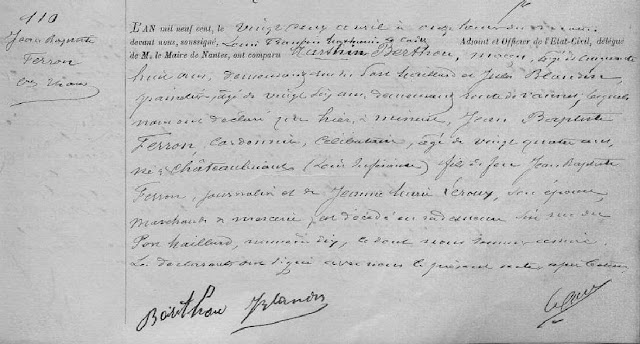 110
Jean Baptiste
Ferron
L'AN mil neuf cent, le vingt cinq avril à onze heures du
devant nous, soussigné, Adjoint et Officer de l'Etat-Civil, délégué
de M. le Maire de Nantes, ont comparu Berthou, maçon, âgé de
huit ans, demeurant rue Port Maillard et Jules Blandin,
peintre âgé de vingt six ans, demeurant route de Vannes, lesquels
nous ont déclaré que hier, à minuit, Jean Baptiste
Ferron, cordonnier, célibataire, âgé de vingt quatre ans,
né à Châteaubriant (Loire Inférieure) fils de feu Jean Baptiste
Ferron, journalier et de Jeanne Marie Leroux, son épouse,
marchande de mercerie, est décédé en sa demeure sise rue du
Port Maillard, numéro dix, ce dont nous sommes assuré.
Les déclarants ont signé avec nous le présent acte, après lecture
Barthau Blandin